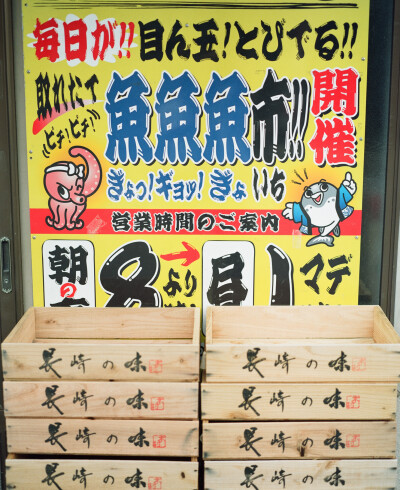 毎日が!!目ん玉!とびでる!!
取れたて
ピチ!ピチ!
魚魚魚市!!
開催
ぎょっ!ギョッ!ぎょいち
営業時間のご案内
朝の
8→より
昼
1マデ
長崎の味
長崎の味
長崎の味
長崎の味
長崎の味
長崎の味
長崎の味
長崎の味